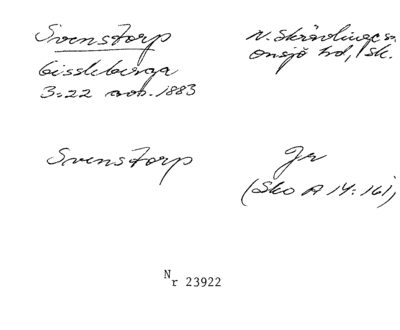 Svenstorp
Gissleberga
3:22 avs. 1883
N. Skrävlinge sn
Onsjö hd, Sk.
Svenstorp
Jr
(Sko A 14: 161)
Nr 23922